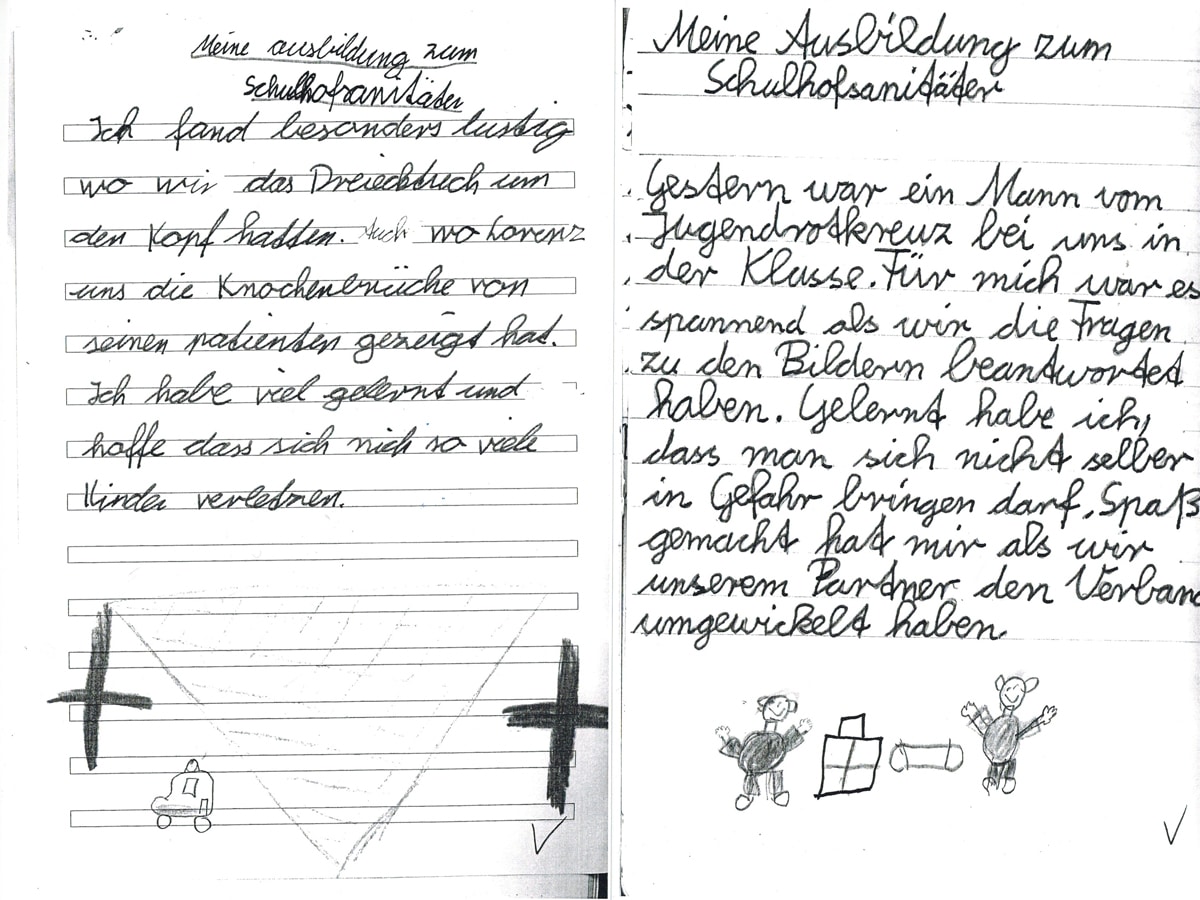 Meine ausbildung zum
Schulhofsanitäter
Ich fand besonders lustig
wo wir das Dreiecktuch um
den Kopf hatten. Auch wo Lorenz
uns die Knochenbrüche von
seinen patienten gezeigt hat.
Ich habe viel gelernt und
hoffe dass sich nich so viele
Kinder verletznen.
Meine Ausbildung zum
Schulhofsanitäter
Gestern war ein Mann vom
Jugendrotkreuz bei uns in
der Klasse. Für mich war es
spannend als wir die Fragen
zu den Bildern beantwortet
haben. Gelernt habe ich,
dass man sich nicht selber
in Gefahr bringen darf. Spaß
gemacht hat mir als wir
unserem Partner den Verband
umgewickelt haben.